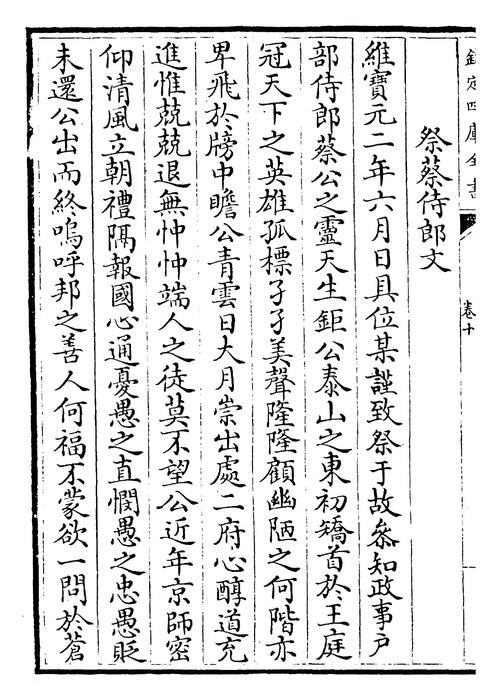 欽定四庫全書
卷十
祭蔡侍郎文
維寶元二年六月日具位某謹致祭于故參知政事戶
部侍郎蔡公之靈天生鉅公泰山之東初矯首於王庭
冠天下之英雄孤標孑孑美聲隆隆顧幽陋之何階亦
卑飛於牓中瞻公青雲日大月崇出處二府心醇道充
進惟兢兢退無忡忡端人之徒莫不望公近年京師密
仰清風立朝禮隔報國心通憂愚之直憫愚之忠愚貶
未還公出而終嗚呼邦之善人何福不蒙欲一問於蒼